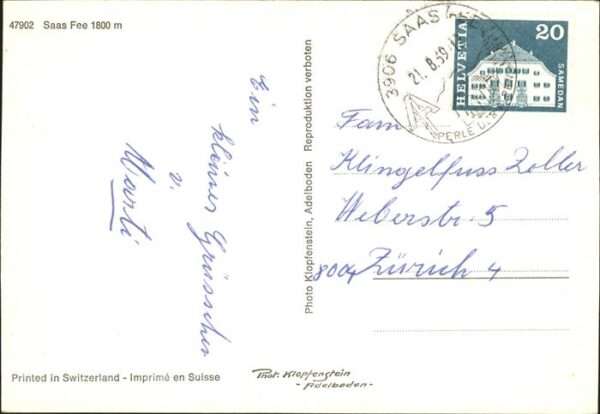 47902 Saas Fee 1800 m
Ein
kleines Grüsschen
v.
Marti
Photo Klopfenstein, Adelboden Reproduktion verboten
3906 SAAS
21.8.69
PERLE
HELVETIA
20
SAMEDAN
Fam.
Klingelfuss Zoller
Weberstr. 5
8004 Zürich 4
Printed in Switzerland - Imprimé en Suisse
Phot. Klopfenstein
- Adelboden -